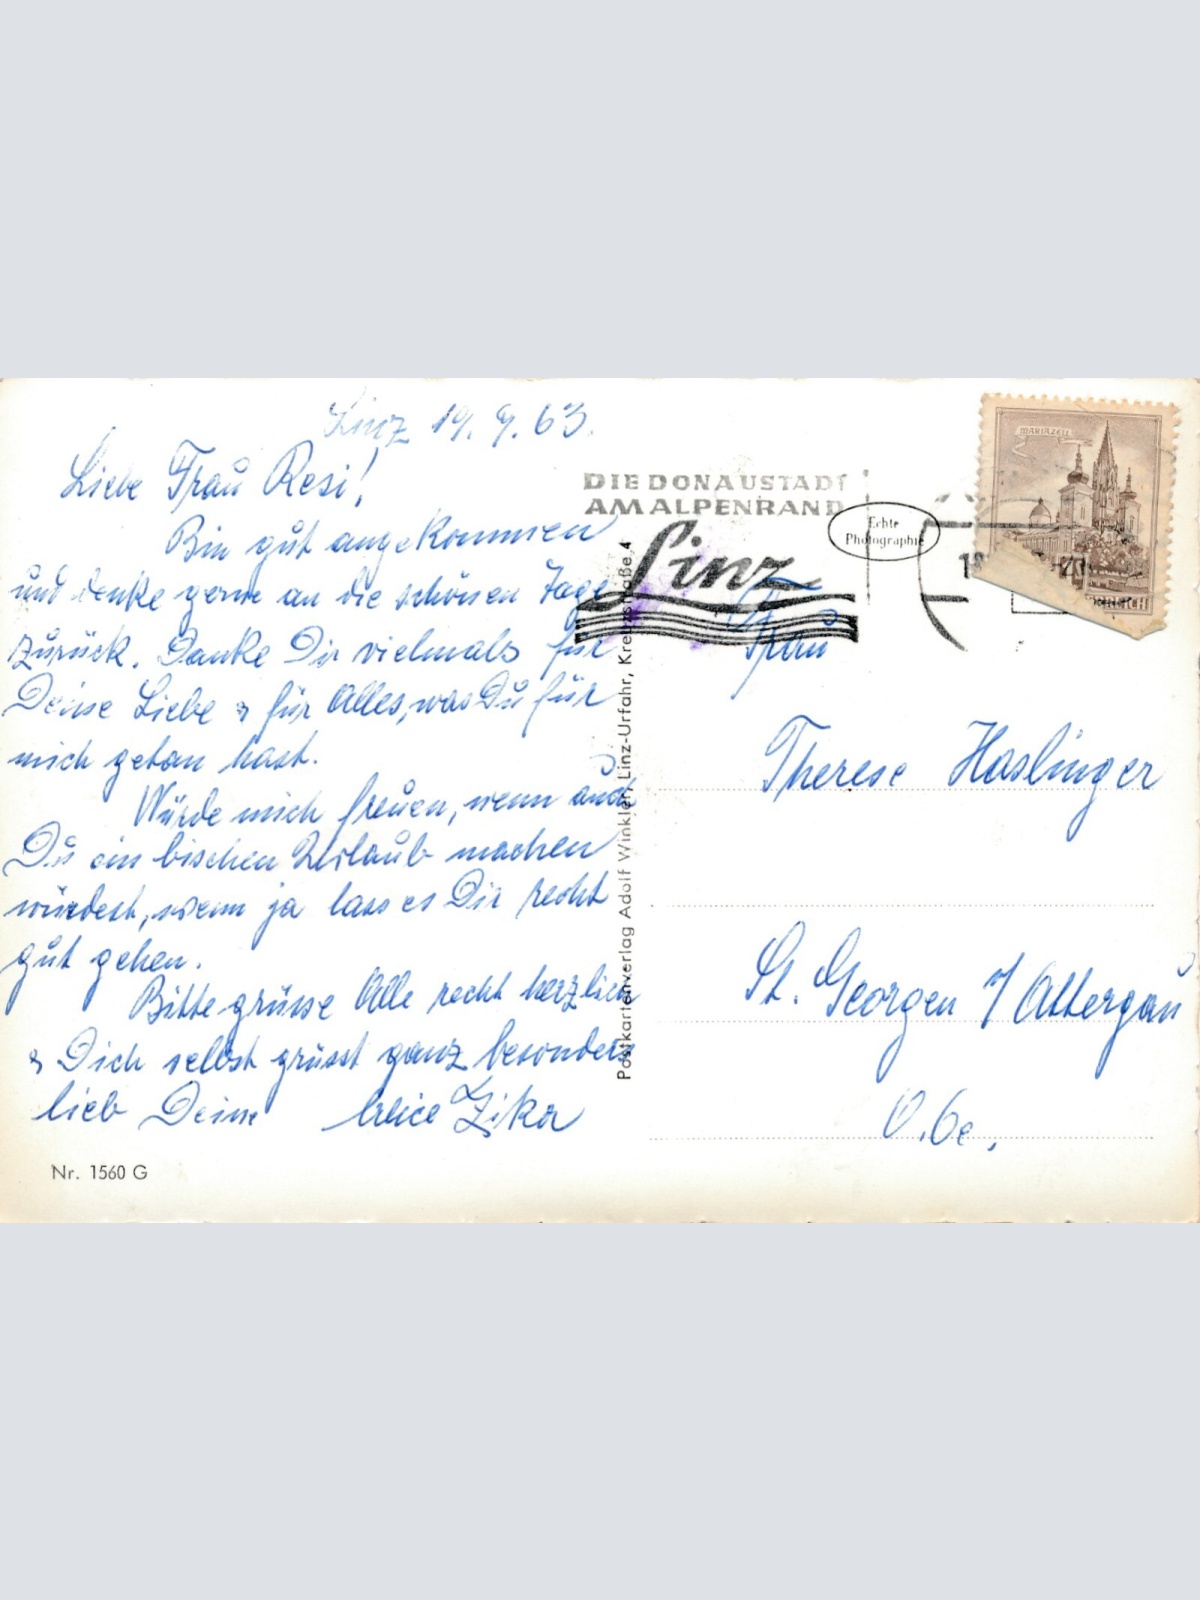 Linz 19. 9. 63.
Liebe Frau Resi!
Bin gut angekommen
und denke gerne an die schönen Tage
zurück. Danke Dir vielmals für
Deine Liebe & für Alles, was Du für
mich getan hast.
Würde mich freuen, wenn auch
Du ein bischen Urlaub machen
würdest, wenn ja lass es Dir recht
gut gehen.
Bitte grüsse Alle recht herzlich
& Dich selbst grüsst ganz besonders
lieb Deine Zika
Nr. 1560 G
Postkartenverlag Adolf Winkler, Linz-Urfahr, Kreuzstraße 4
DIE DONAUSTADT
AM ALPENRAND
Linz
Echte
Photographie
MARIAZELL
Frau
Therese Haslinger
St. Georgen i/Attergau
O.Oe.